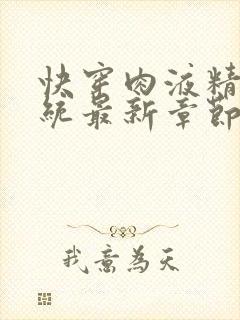 快穿肉液精
统最新章節
我意為天